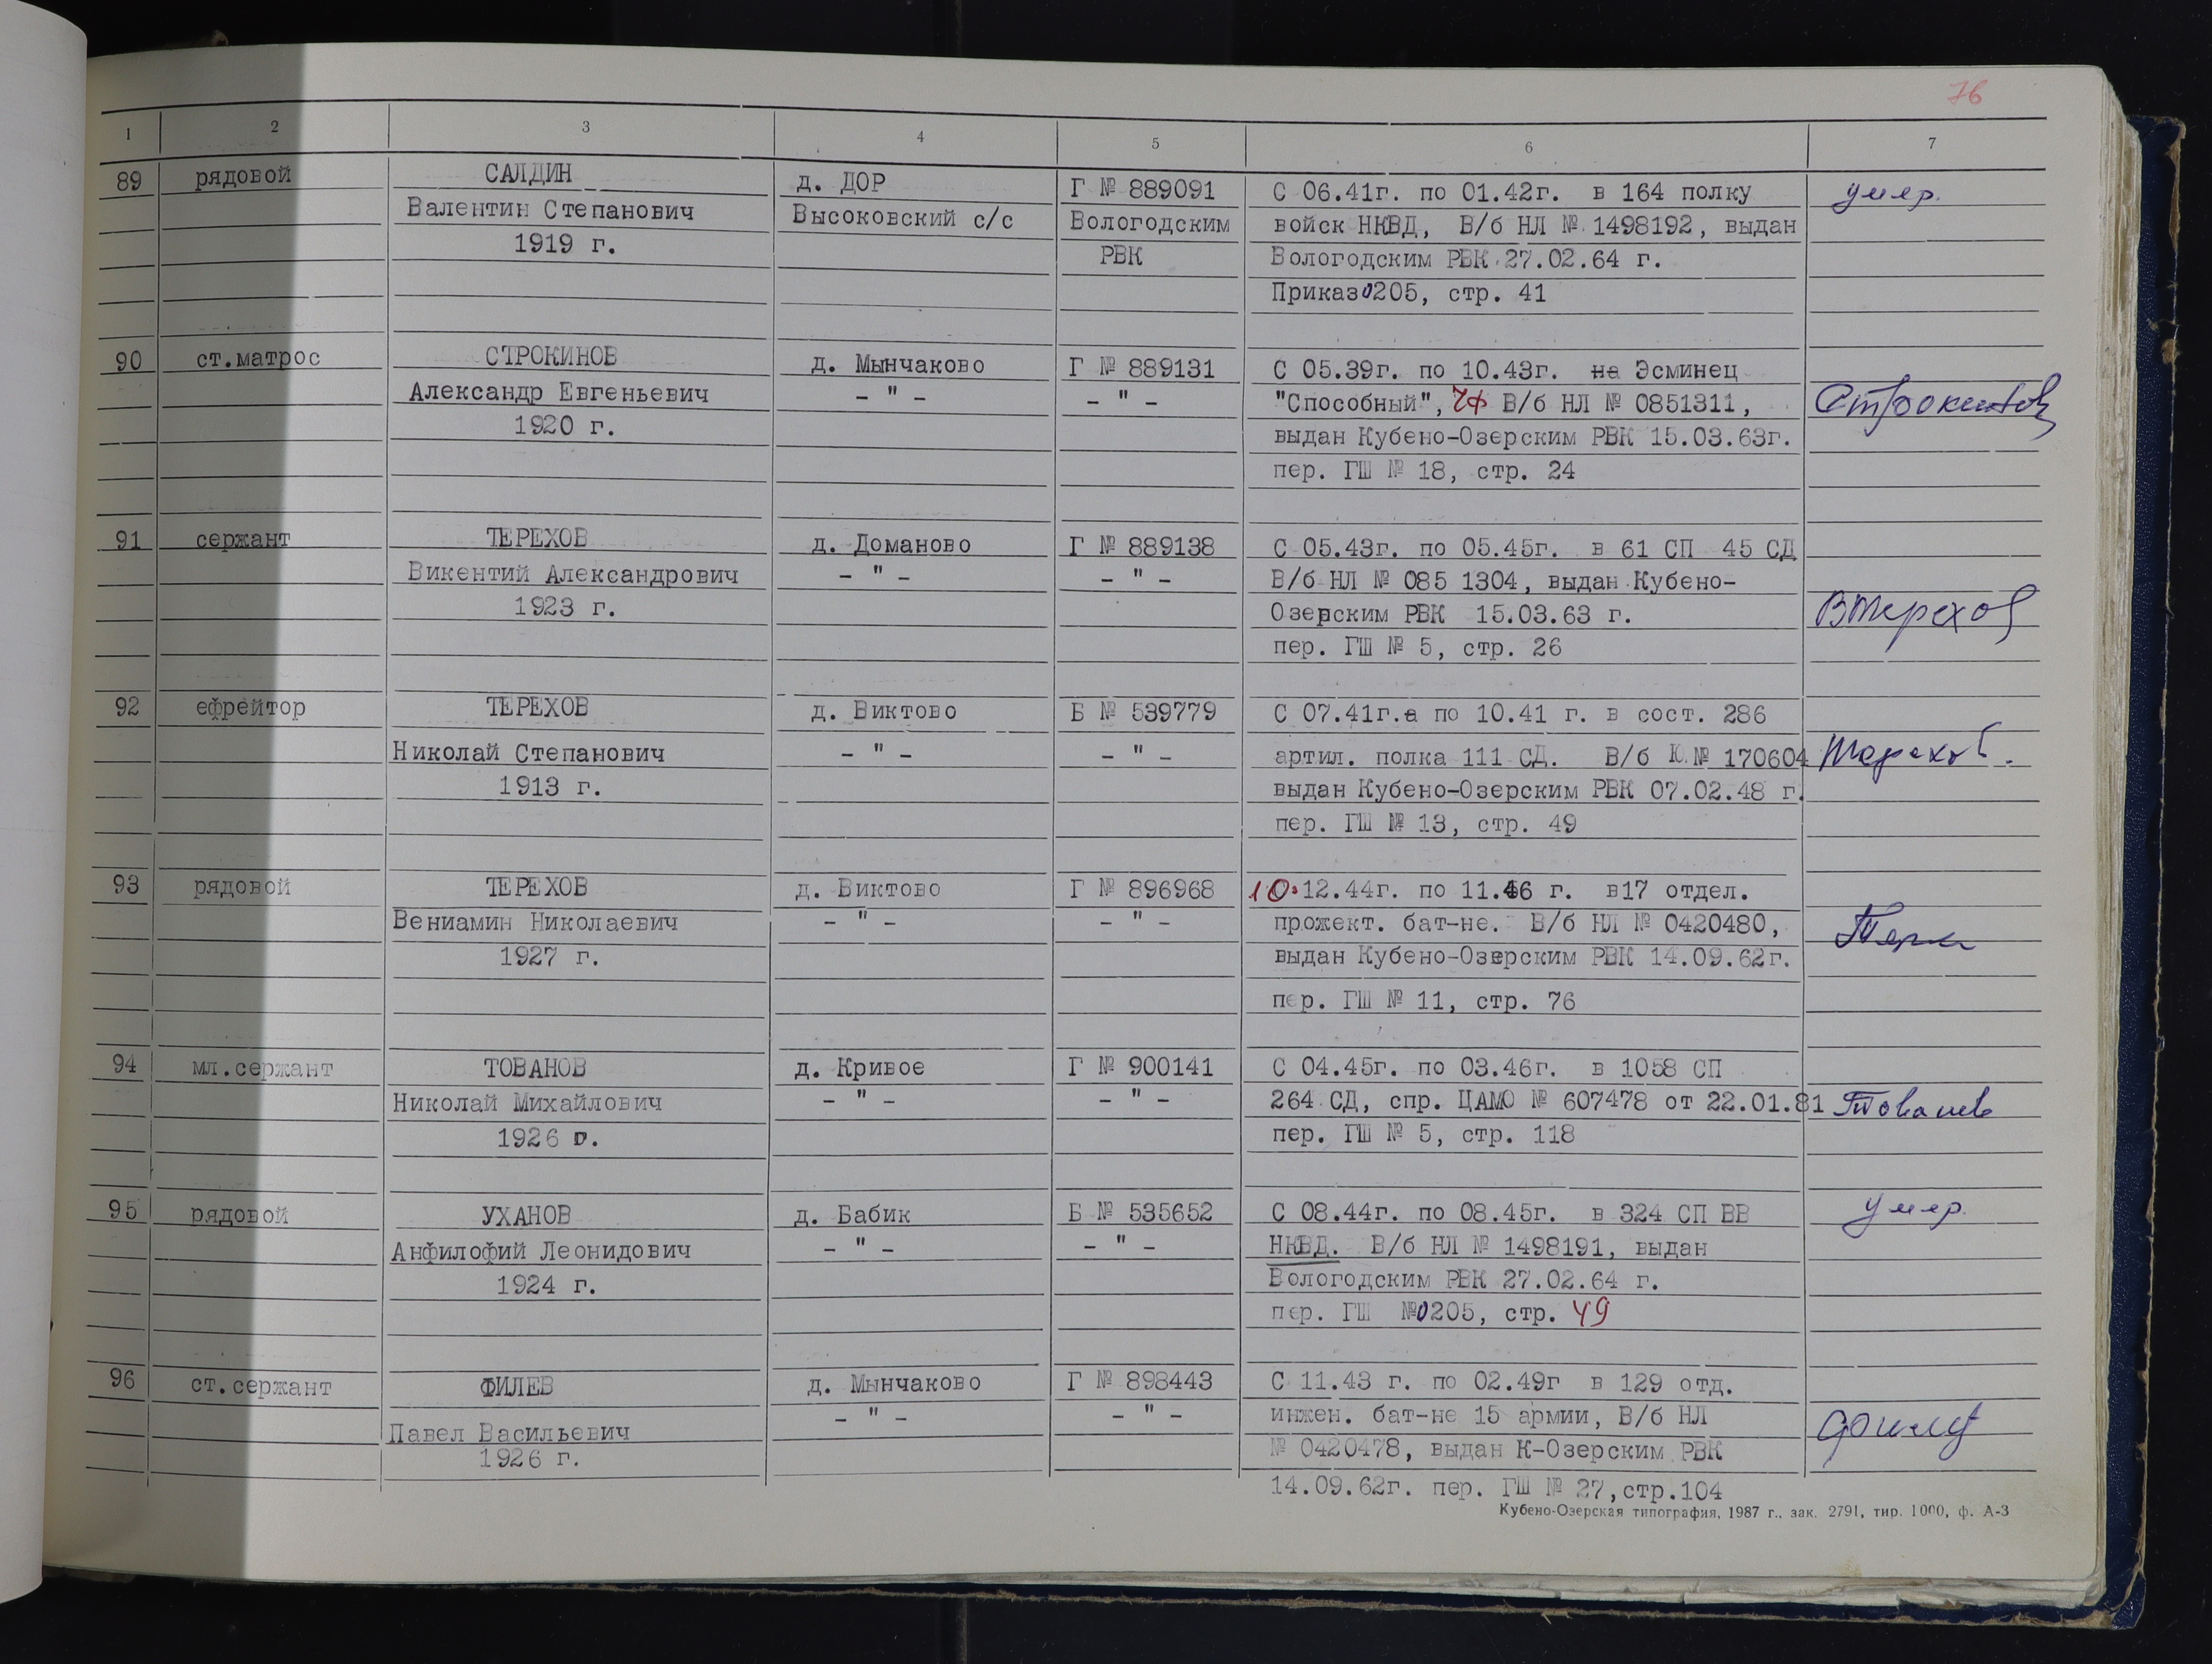 76
1 2 3 4 5 6 7
89 рядовой САЛДИН д. ДОР Г № 889091 С 06.41г. по 01.42г. в 164 полку умер.
Валентин Степанович Высоковский с/с Вологодским войск НКВД, В/б НЛ № 1498192, выдан
1919 г. РВК Вологодским РВК 27.02.64 г.
Приказ 0205, стр. 41
90 ст.матрос СТРОКИНОВ д. Мынчаково Г № 889131 С 05.39г. по 10.43г. на Эсминец
Александр Евгеньевич - " - - " - "Способный", ЧФ В/б НЛ № 0851311, Строкинов
1920 г. выдан Кубено-Озерским РВК 15.03.63г.
пер. ГШ № 18, стр. 24
91 сержант ТЕРЕХОВ д. Доманово Г № 889138 С 05.43г. по 05.45г. в 61 СП 45 СД
Викентий Александрович - " - - " - В/б НЛ № 085 1304, выдан Кубено-
1923 г. Озерским РВК 15.03.63 г. ВТерехов
пер. ГШ № 5, стр. 26
92 ефрейтор ТЕРЕХОВ д. Виктово Б № 539779 С 07.41г.а по 10.41 г. в сост. 286
Николай Степанович - " - - " - артил. полка 111 СД. В/б Ю № 170604 Терехов.
1913 г. выдан Кубено-Озерским РВК 07.02.48 г.
пер. ГШ № 13, стр. 49
93 рядовой ТЕРЕХОВ д. Виктово Г № 896968 10.12.44г. по 11.46 г. в17 отдел.
Вениамин Николаевич - " - - " - прожект. бат-не. В/б НЛ № 0420480,
1927 г. выдан Кубено-Озерским РВК 14.09.62г.
пер. ГШ № 11, стр. 76
94 мл.сержант ТОВАНОВ д. Кривое Г № 900141 С 04.45г. по 03.46г. в 1058 СП
Николай Михайлович - " - - " - 264 СД, спр. ЦАМО № 607478 от 22.01.81 Тованов
1926 г. пер. ГШ № 5, стр. 118
95 рядовой УХАНОВ д. Бабик Б № 535652 С 08.44г. по 08.45г. в 324 СП ВВ умер.
Анфилофий Леонидович - " - - " - НКВД. В/б НЛ № 1498191, выдан
1924 г. Вологодским РВК 27.02.64 г.
пер. ГШ №0205, стр. 49
96 ст.сержант ФИЛЕВ д. Мынчаково Г № 898443 С 11.43 г. по 02.49г в 129 отд.
Павел Васильевич - " - - " - инжен. бат-не 15 армии, В/б НЛ
1926 г. № 0420478, выдан К-Озерским РВК
14.09.62г. пер. ГШ № 27,стр.104
Кубено-Озерская типография, 1987 г., зак. 2791, тир. 1000, ф. А-3